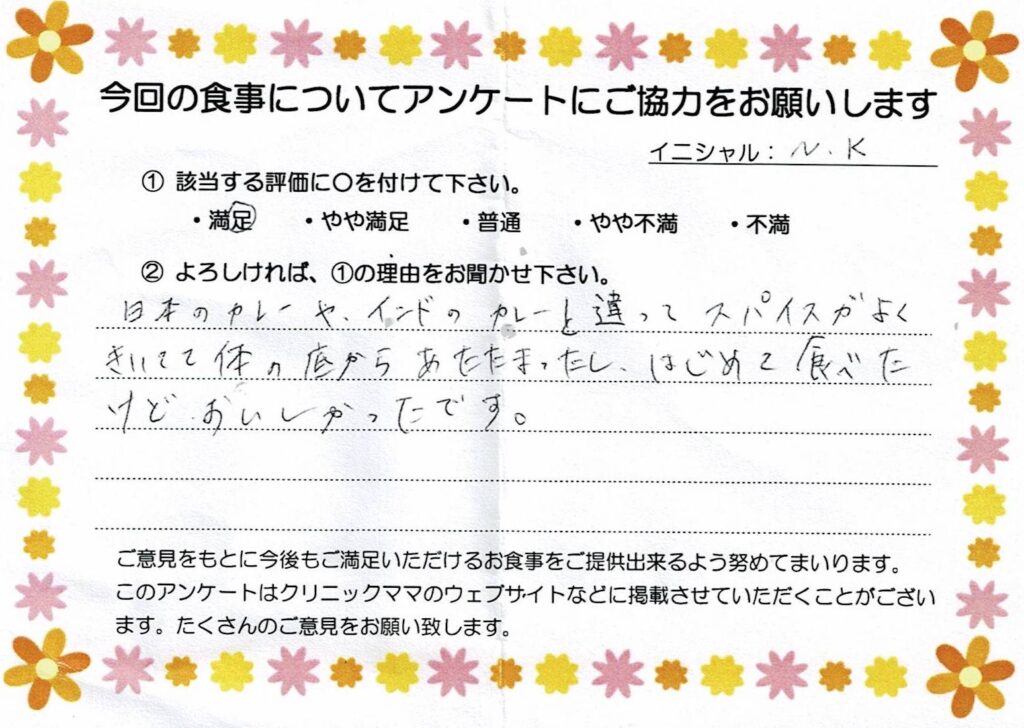 今回の食事についてアンケートにご協力をお願いします
イニシャル： N.K
① 該当する評価に〇を付けて下さい。
・満足 ・やや満足 ・普通 ・やや不満 ・不満
② よろしければ、①の理由をお聞かせ下さい。
日本のカレーや、インドのカレーと違ってスパイスがよく
きいてて体の底からあたたまったし、はじめて食べた
けど、おいしかったです。
ご意見をもとに今後もご満足いただけるお食事をご提供出来るよう努めてまいります。
このアンケートはクリニックママのウェブサイトなどに掲載させていただくことがござい
ます。たくさんのご意見をお願い致します。